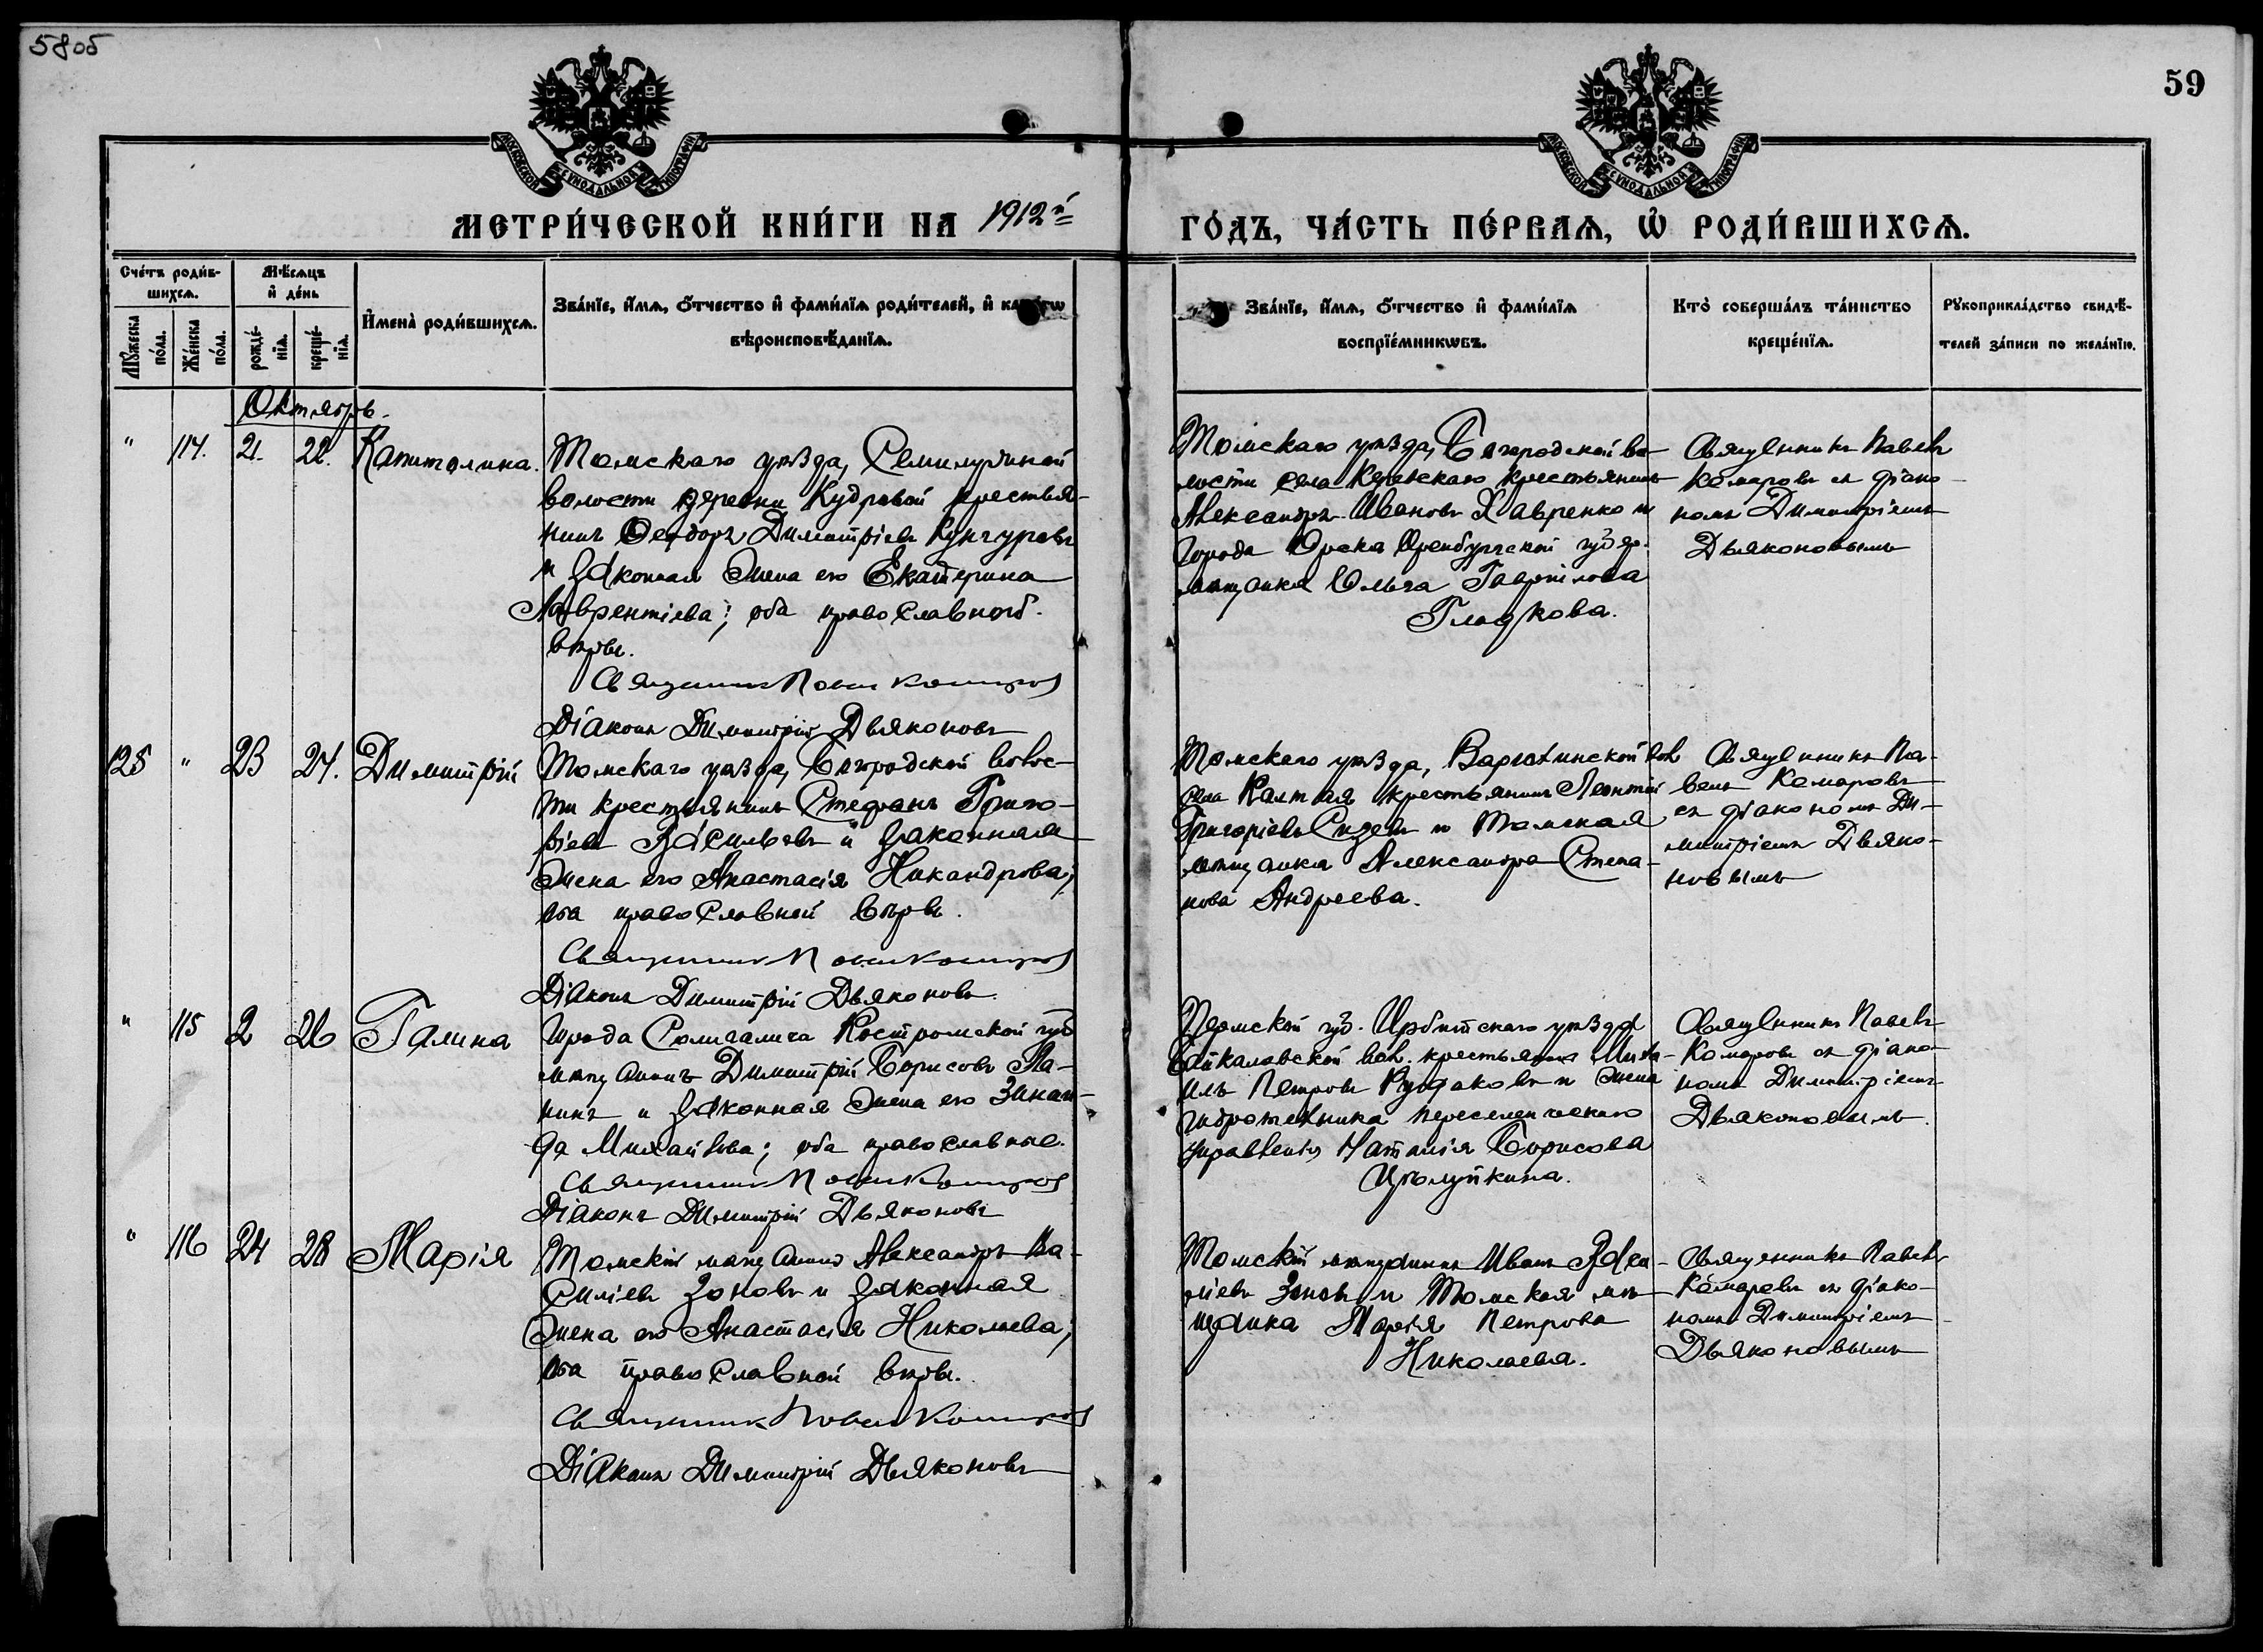 58об
59
МОСКОВСКОЙ СѴНОДАЛЬНОЙ ТИПОГРАФІИ
МОСКОВСКОЙ СѴНОДАЛЬНОЙ ТИПОГРАФІИ
МЕТРИ́ЧЕСКОЙ КНИ́ГИ НА 1912й
ГО́ДЪ, ЧА́СТЬ ПЕ́РВАѦ, Ѡ҆ РОДИ́ВШИХСѦ.
Сче́тъ роди́в-
шихсѧ.
Мѣ́сѧцъ
и҆ де́нь
Мꙋ́жеска
по́ла.
Же́нска
по́ла.
рожде́-
нїѧ.
креще́-
нїѧ.
И҆мена̀ роди́вшихсѧ.
Зва́нїе, и҆́мѧ, ѻ҆́тчество и҆ фами́лїѧ роди́телей, и҆
вѣроисповѣ́данїѧ.
Зва́нїе, и҆́мѧ, ѻ҆́тчество и҆ фами́лїѧ
воспрїе́мникѡвъ.
Кто̀ соверша́лъ та́инство
креще́нїѧ.
Рꙋкоприкла́дство свидѣ́-
телей за́писи по жела́нїю.
Октябрь.
" 114. 21. 22. Капитолина.
Томскаго уѣзда, Семилужной
волости деревни Кудровой крестья-
нинъ Ѳеодоръ Димитріевъ Кунгуровъ
и законная жена его Екатерина
Лаврентіева; оба православной
вѣры.
Священникъ Павелъ Комаровъ
Діаконъ Димитрій Дьяконовъ
Томскаго уѣзда, Богородской во-
лости села крестьянинъ
Александръ Ивановъ Хавренко и
города Орска Оренбургской губер.
мѣщанка Ольга Гаврилова
Гладкова.
Священникъ Павелъ
Комаровъ съ діако-
номъ Димитріемъ
Дьяконовымъ
125 " 23 24. Димитрій
Томскаго уѣзда, Богородской волос-
ти крестьянинъ Стефанъ Григо-
ріевъ Васильевъ и законная
жена его Анастасія Никандрова;
оба православной вѣры.
Священникъ Павелъ Комаровъ
Діаконъ Димитрій Дьяконовъ.
Томскаго уѣзда, Варюхинской вол
села крестьянинъ Леонтій
Григоріевъ и Томская
мѣщанка Александра Степа-
нова Андреева.
Священникъ Па-
велъ Комаровъ
съ діакономъ Ди-
митріемъ Дьяко-
новымъ
" 115 2 26 Галина
Города Солигалича Костромской губ
мѣщанинъ Димитрій Борисовъ Па-
нинъ и законная жена его Зинаи-
да Михайлова; оба православные.
Священникъ Павелъ Комаровъ
Діаконъ Димитрій Дьяконовъ
Пермской губ. Ирбитскаго уѣзда
Байкаловской вол. крестьянинъ Миха-
илъ Петровъ Кудаковъ и жена
гидротехника переселенческаго
управленія Наталія Борисова
Священникъ Павелъ
Комаровъ съ діако-
номъ Димитріемъ
Дьяконовымъ.
" 116 24 28 Марія
Томскій мѣщанинъ Александръ Ва-
силіевъ Зоновъ и законная
жена его Анастасія Николаева;
оба православной вѣры.
Священникъ Павелъ Комаровъ
Діаконъ Димитрій Дьяконовъ
Томскій мѣщанинъ Иванъ Васи-
ліевъ Зоновъ и Томская мѣ-
щанка Марія Петрова
Николаева.
Священникъ Павелъ
Комаровъ съ діако-
номъ Димитріемъ
Дьяконовымъ